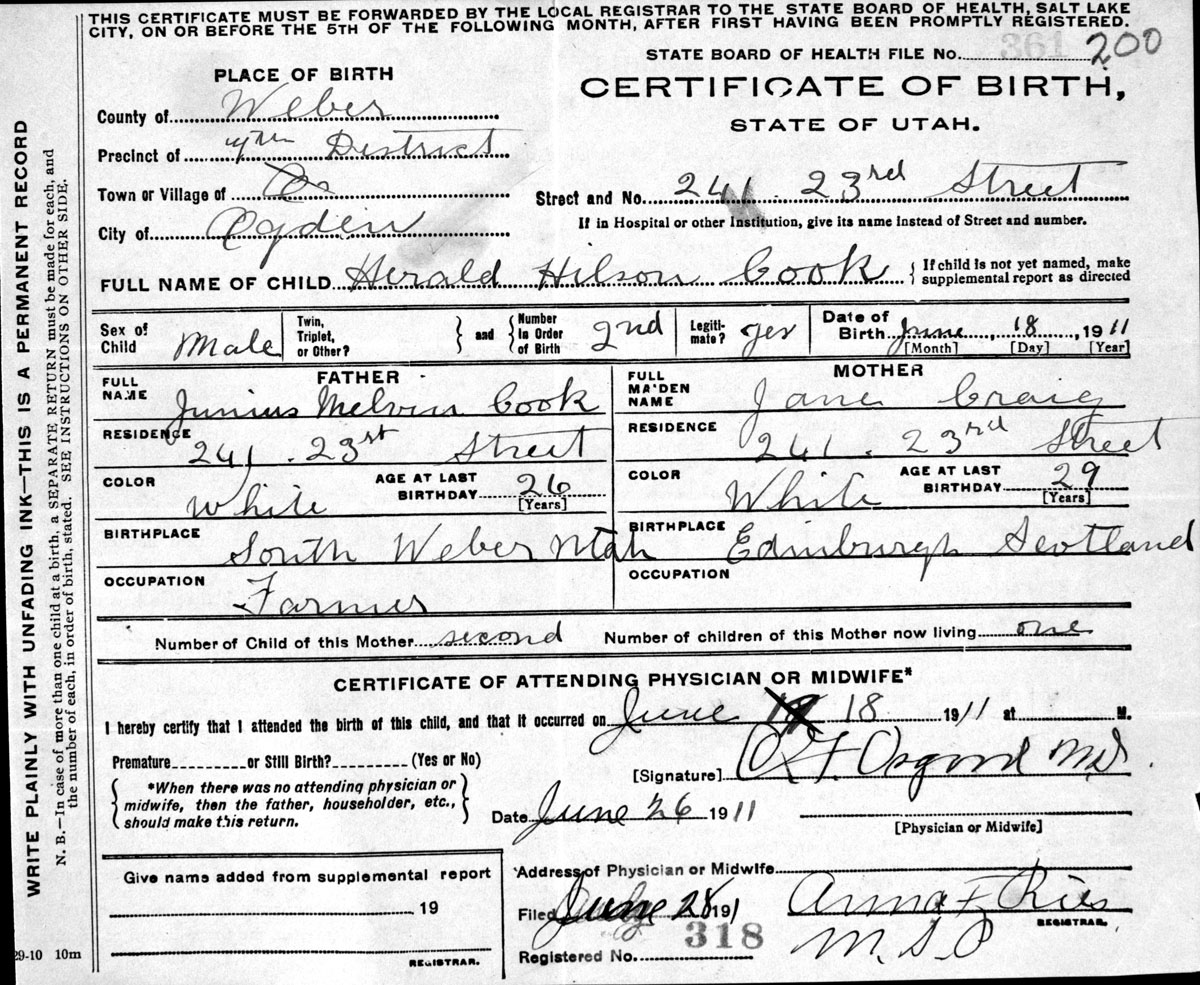 THIS CERTIFICATE MUST BE FORWARDED BY THE LOCAL REGISTRAR TO THE STATE BOARD OF HEALTH, SALT LAKE
CITY, ON OR BEFORE THE 5TH OF THE FOLLOWING MONTH, AFTER FIRST HAVING BEEN PROMPTLY REGISTERED.
STATE BOARD OF HEALTH FILE No. 361 200
PLACE OF BIRTH
CERTIFICATE OF BIRTH,
STATE OF UTAH.
County of Weber
Precinct of District
Town or Village of
Street and No. 241 . 23rd Street
City of Ogden
If in Hospital or other Institution, give its name instead of Street and number.
FULL NAME OF CHILD Herald Hilson Cook { If child is not yet named, make
supplemental report as directed
Sex of Child Male
Twin, Triplet, or Other? } and { Number in Order of Birth 2nd
Legitimate? yes
Date of Birth June 18, 1911
[Month] [Day] [Year]
FATHER
FULL NAME Junius Melvin Cook
RESIDENCE 241 . 23st Street
COLOR White
AGE AT LAST BIRTHDAY 26 [Years]
BIRTHPLACE South Weber Utah
OCCUPATION Farmer
MOTHER
FULL MAIDEN NAME Jane Craig
RESIDENCE 241 . 23rd Street
COLOR White
AGE AT LAST BIRTHDAY 29 [Years]
BIRTHPLACE Edinburgh Scotland
OCCUPATION
Number of Child of this Mother second Number of children of this Mother now living one
CERTIFICATE OF ATTENDING PHYSICIAN OR MIDWIFE*
I hereby certify that I attended the birth of this child, and that it occurred on June 18 1911 at M.
Premature or Still Birth? (Yes or No)
[Signature] Osgood MD
{ *When there was no attending physician or
midwife, then the father, householder, etc.,
should make this return. }
Date June 26 1911
[Physician or Midwife]
Give name added from supplemental report
19
REGISTRAR.
Address of Physician or Midwife
Filed 28 191
Anna F Ries
REGISTRAR.
318
Registered No.
29-10 10m
WRITE PLAINLY WITH UNFADING INK—THIS IS A PERMANENT RECORD
N. B.—In case of more than one child at a birth, a SEPARATE RETURN must be made for each, and
the number of each, in order of birth, stated. SEE INSTRUCTIONS ON OTHER SIDE.